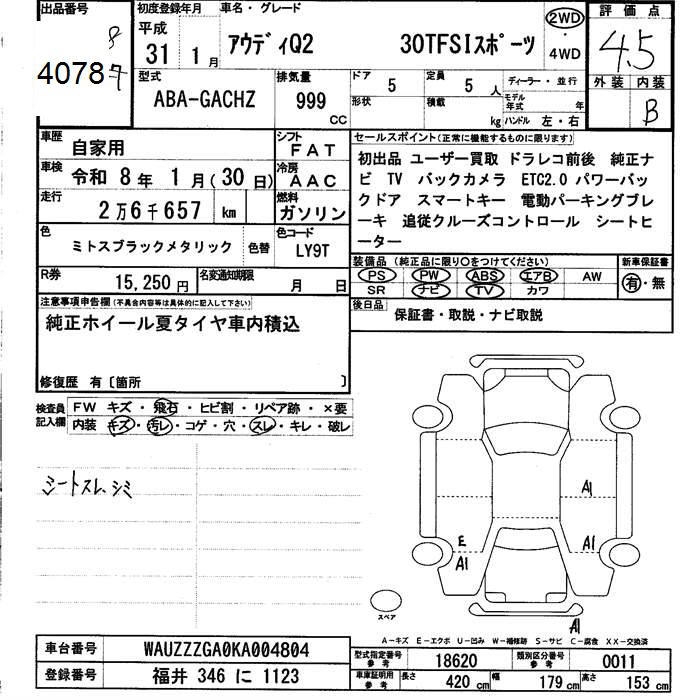 出品番号
4078
初度登録年月
平成
31 1月
車名・グレード
アウディQ2 30TFSIスポーツ
2WD
・
4WD
評価点
4.5
外装 内装
B
型式
ABA-GACHZ
排気量
999
CC
ドア
5
定員
5 人
形状
積載
kg
ディーラー・並行
モデル年式 年
ハンドル 左・右
車歴
自家用
シフト
FAT
車検
令和 8年 1月(30日)
冷房
AAC
走行
2万6千657 km
燃料
ガソリン
色
ミトスブラックメタリック
色替
色コード
LY9T
R券
15,250円
名変通知期限
月 日
セールスポイント(正常に機能するものに限ります)
初出品 ユーザー買取 ドラレコ前後 純正ナ
ビ TV バックカメラ ETC2.0 パワーバッ
クドア スマートキー 電動パーキングブレ
ーキ 追従クルーズコントロール シートヒ
ーター
装備品 (純正品に限り〇をつけてください)
PS PW ABS エアB AW
SR ナビ TV カワ
新車保証書
有・無
後日品
保証書・取説・ナビ取説
注意事項申告欄(不具合内容等は具体的に記入して下さい)
純正ホイール夏タイヤ車内積込
修復歴 有〔箇所 〕
検査員
記入欄
FW キズ・飛石・ヒビ割・リペア跡・×要
内装 キズ・汚レ・コゲ・穴・スレ・キレ・破レ
シートスレ、シミ
A1
E
A1
A1
A1
スペア
A−キズ E−エクボ U−凹み W−補修跡 S−サビ C−腐食 XX−交換済
車台番号
WAUZZZGA0KA004804
登録番号
福井 346 に 1123
型式指定番号
参考
18620
類別区分番号
参考
0011
車庫証明用
参考
長さ
420 cm
幅
179 cm
高さ
153 cm